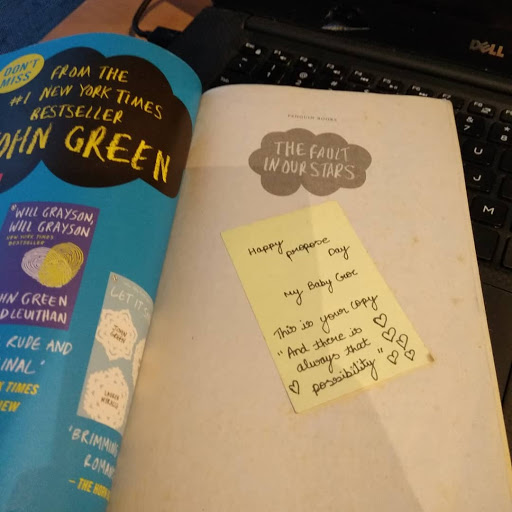 DON'T
MISS
FROM THE
#1 NEW YORK TIMES
BESTSELLER
JOHN GREEN
WILL GRAYSON,
WILL GRAYSON
NEW YORK TIMES
BESTSELLER
HN GREEN
D LEVITHAN
RUDE AND
INAL'
TIMES
EW
LET IT
JOHN
GREEN
LAUREN
MYRACLE
'BRIMMING
ROMAN
– THE HORN
PENGUIN BOOKS
THE FAULT
IN OUR STARS
Happy propose Day
My Baby Croc
This is your copy
"And there is
always that
possibility"
DELL
7
8
U
J
M